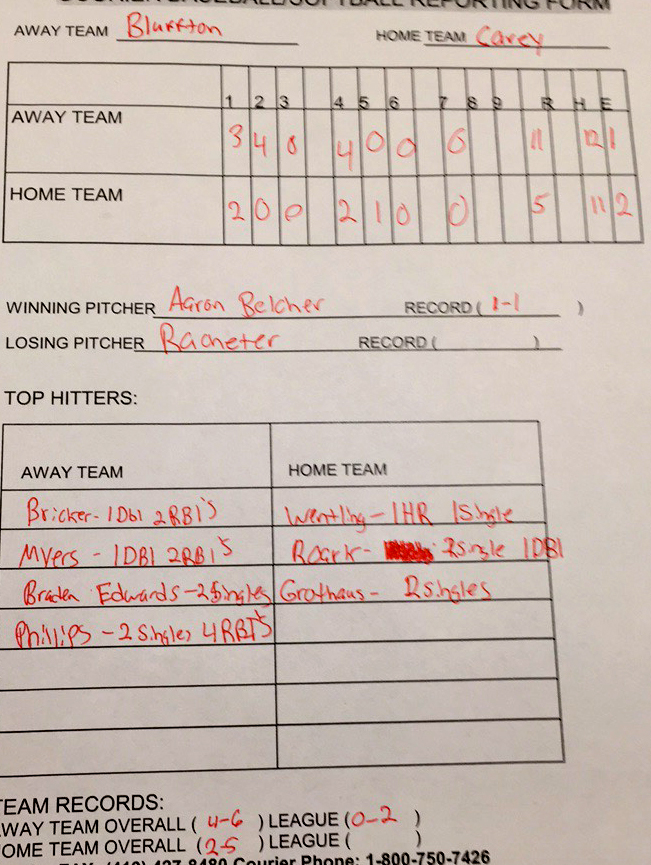 COURIER BASEBALL/SOFTBALL REPORTING FORM
AWAY TEAM Bluffton HOME TEAM Carey
1 2 3 4 5 6 7 8 9 R H E
AWAY TEAM 3 4 0 4 0 0 0 11 12 1
HOME TEAM 2 0 0 2 1 0 0 5 11 2
WINNING PITCHER Aaron Belcher RECORD ( 1-1 )
LOSING PITCHER RECORD ( )
TOP HITTERS:
AWAY TEAM HOME TEAM
Bricker - 1Dbl 2RBI's Wentling - 1HR 1Single
Myers - 1DBl 2RBI's Roark - 2Single 1DBl
Braden Edwards - 2Singles Grothaus - 2singles
Phillips - 2 Singles 4RBI's
TEAM RECORDS:
AWAY TEAM OVERALL ( 4-6 ) LEAGUE ( 0-2 )
HOME TEAM OVERALL ( 2-5 ) LEAGUE ( )
FAX: (419) 427-8480 Courier Phone: 1-800-750-7426